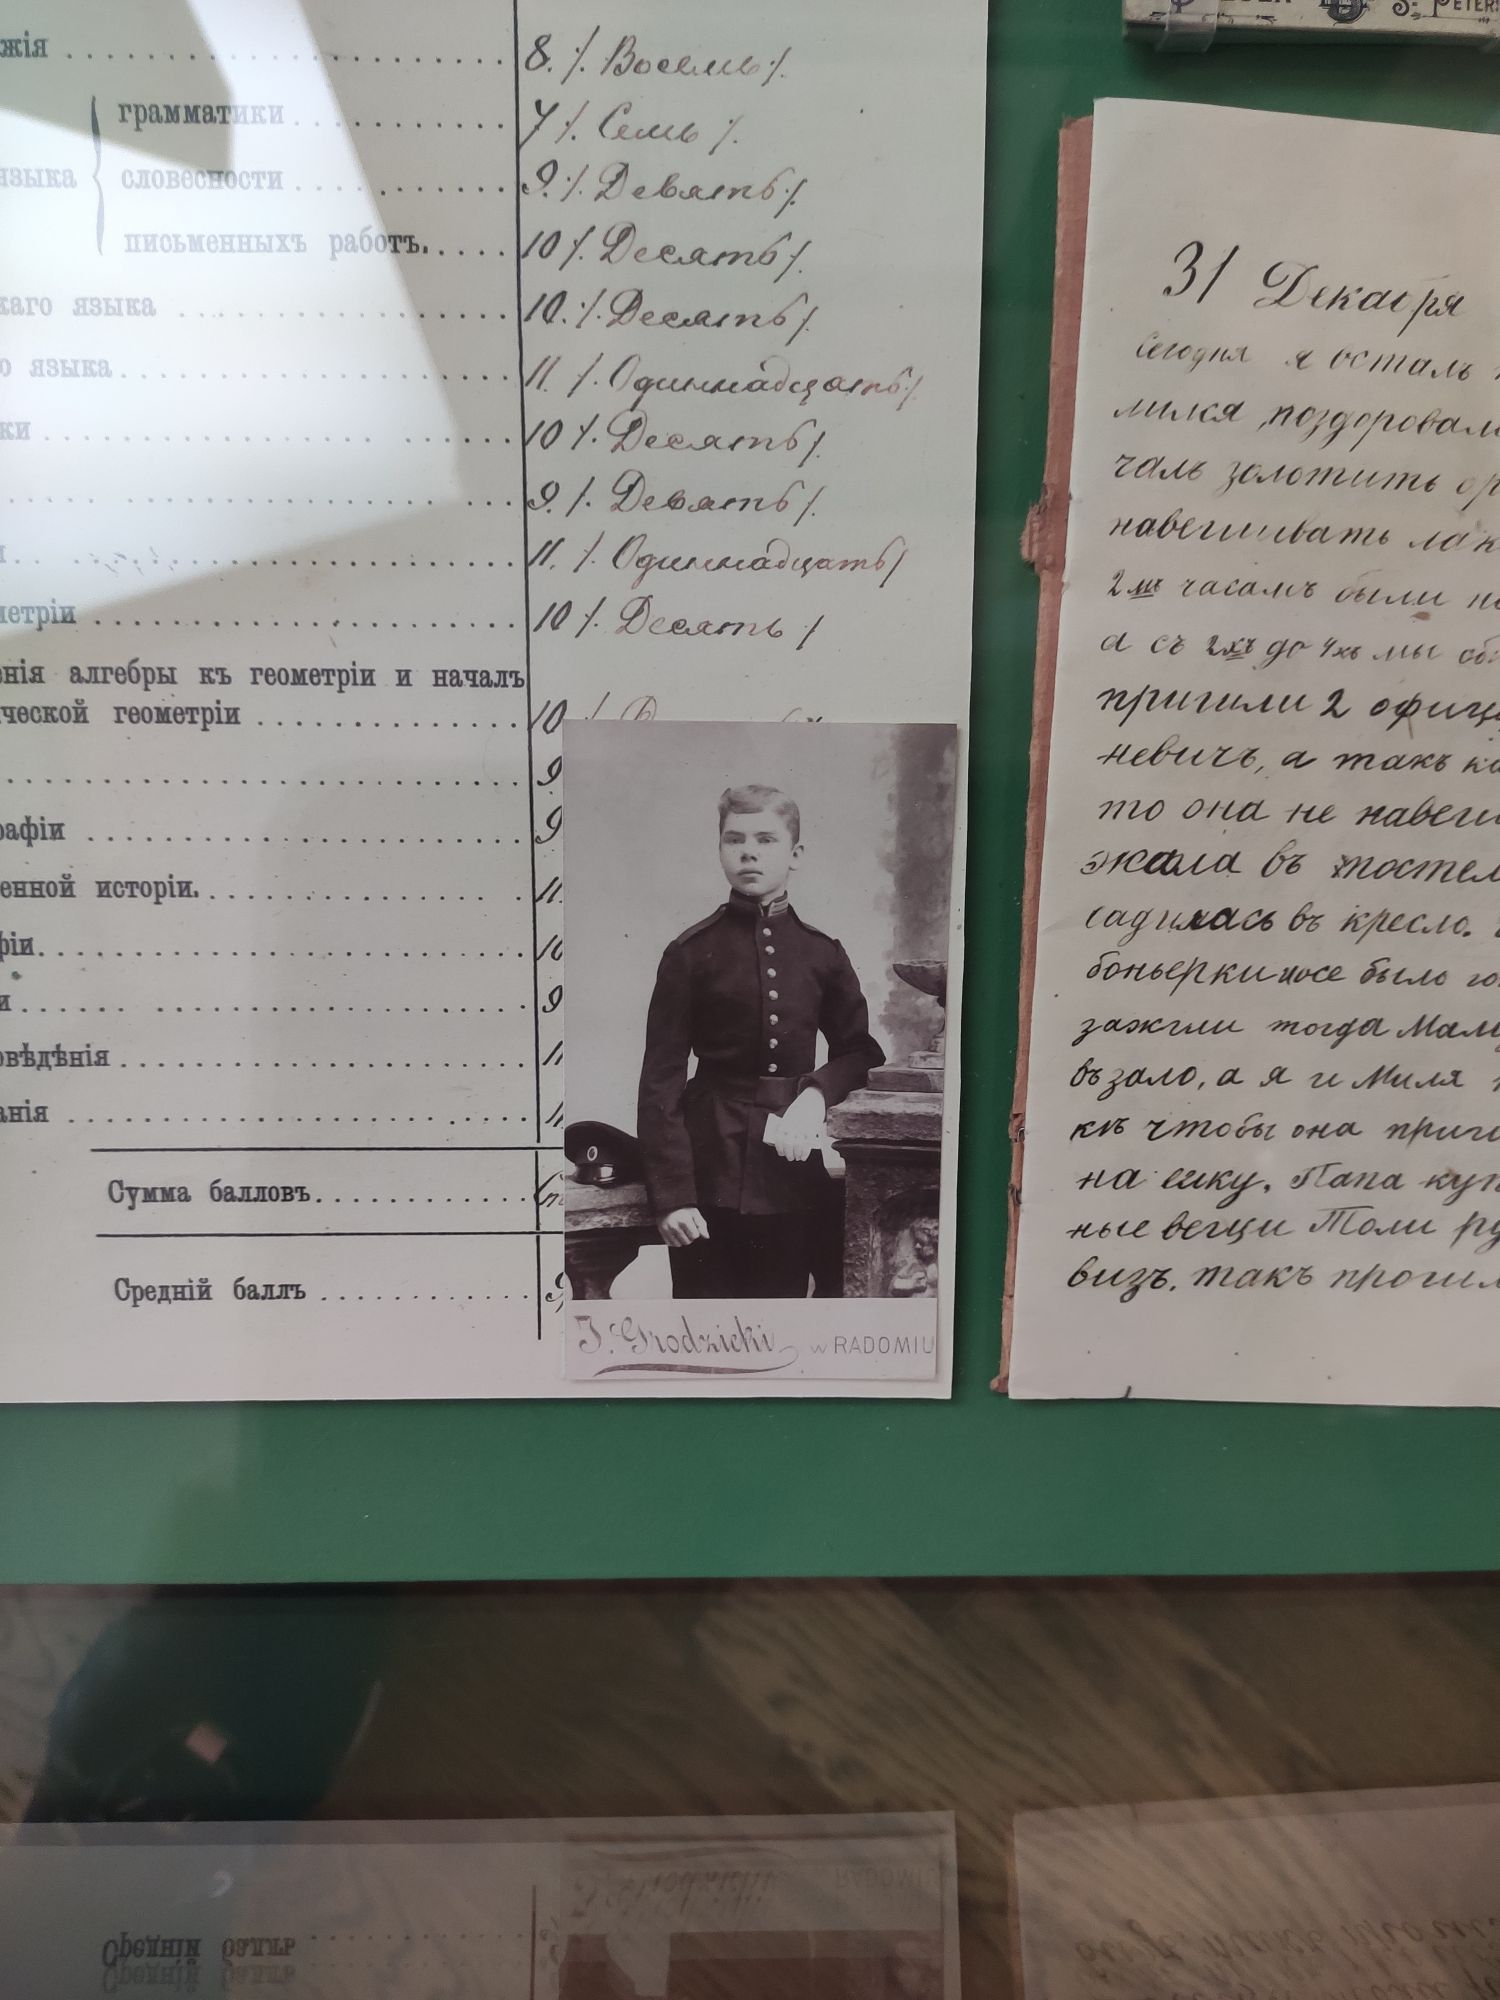 S. PETERS
жія 8. /. Восемь /.
грамматики 7 /. Семь /.
языка словесности 9. /. Девять /.
письменныхъ работъ. 10 /. Десять /.
каго языка 10. /. Десять /.
о языка 11. /. Одиннадцать /.
ки 10 /. Десять /.
9. /. Девять /.
и. 11. /. Одиннадцать /
метріи 10 /. Десять /
енія алгебры къ геометріи и началъ
ческой геометріи 10
9
рафіи 9
енной исторіи. 11.
фіи. 10
и 9
овѣдѣнія 11
анія 11
Сумма балловъ
Средній баллъ 9,
J. Grodzicki w RADOMIU
31 Декабря
Сегодня я всталъ
мился, поздоровалс
чалъ золотить ор
навешивать лак
2мъ часамъ были
а съ 2хъ до 4хъ мы
пришли 2 офице
невичъ, а такъ ка
то она не навеш
жала въ постел
садилась въ кресло.
боньерки все было го
зажгли тогда Мам
въ зало, а я и Миля
къ чтобы она приш
на елку. Папа куп
ные вещи Толи ру
визъ. такъ прошл